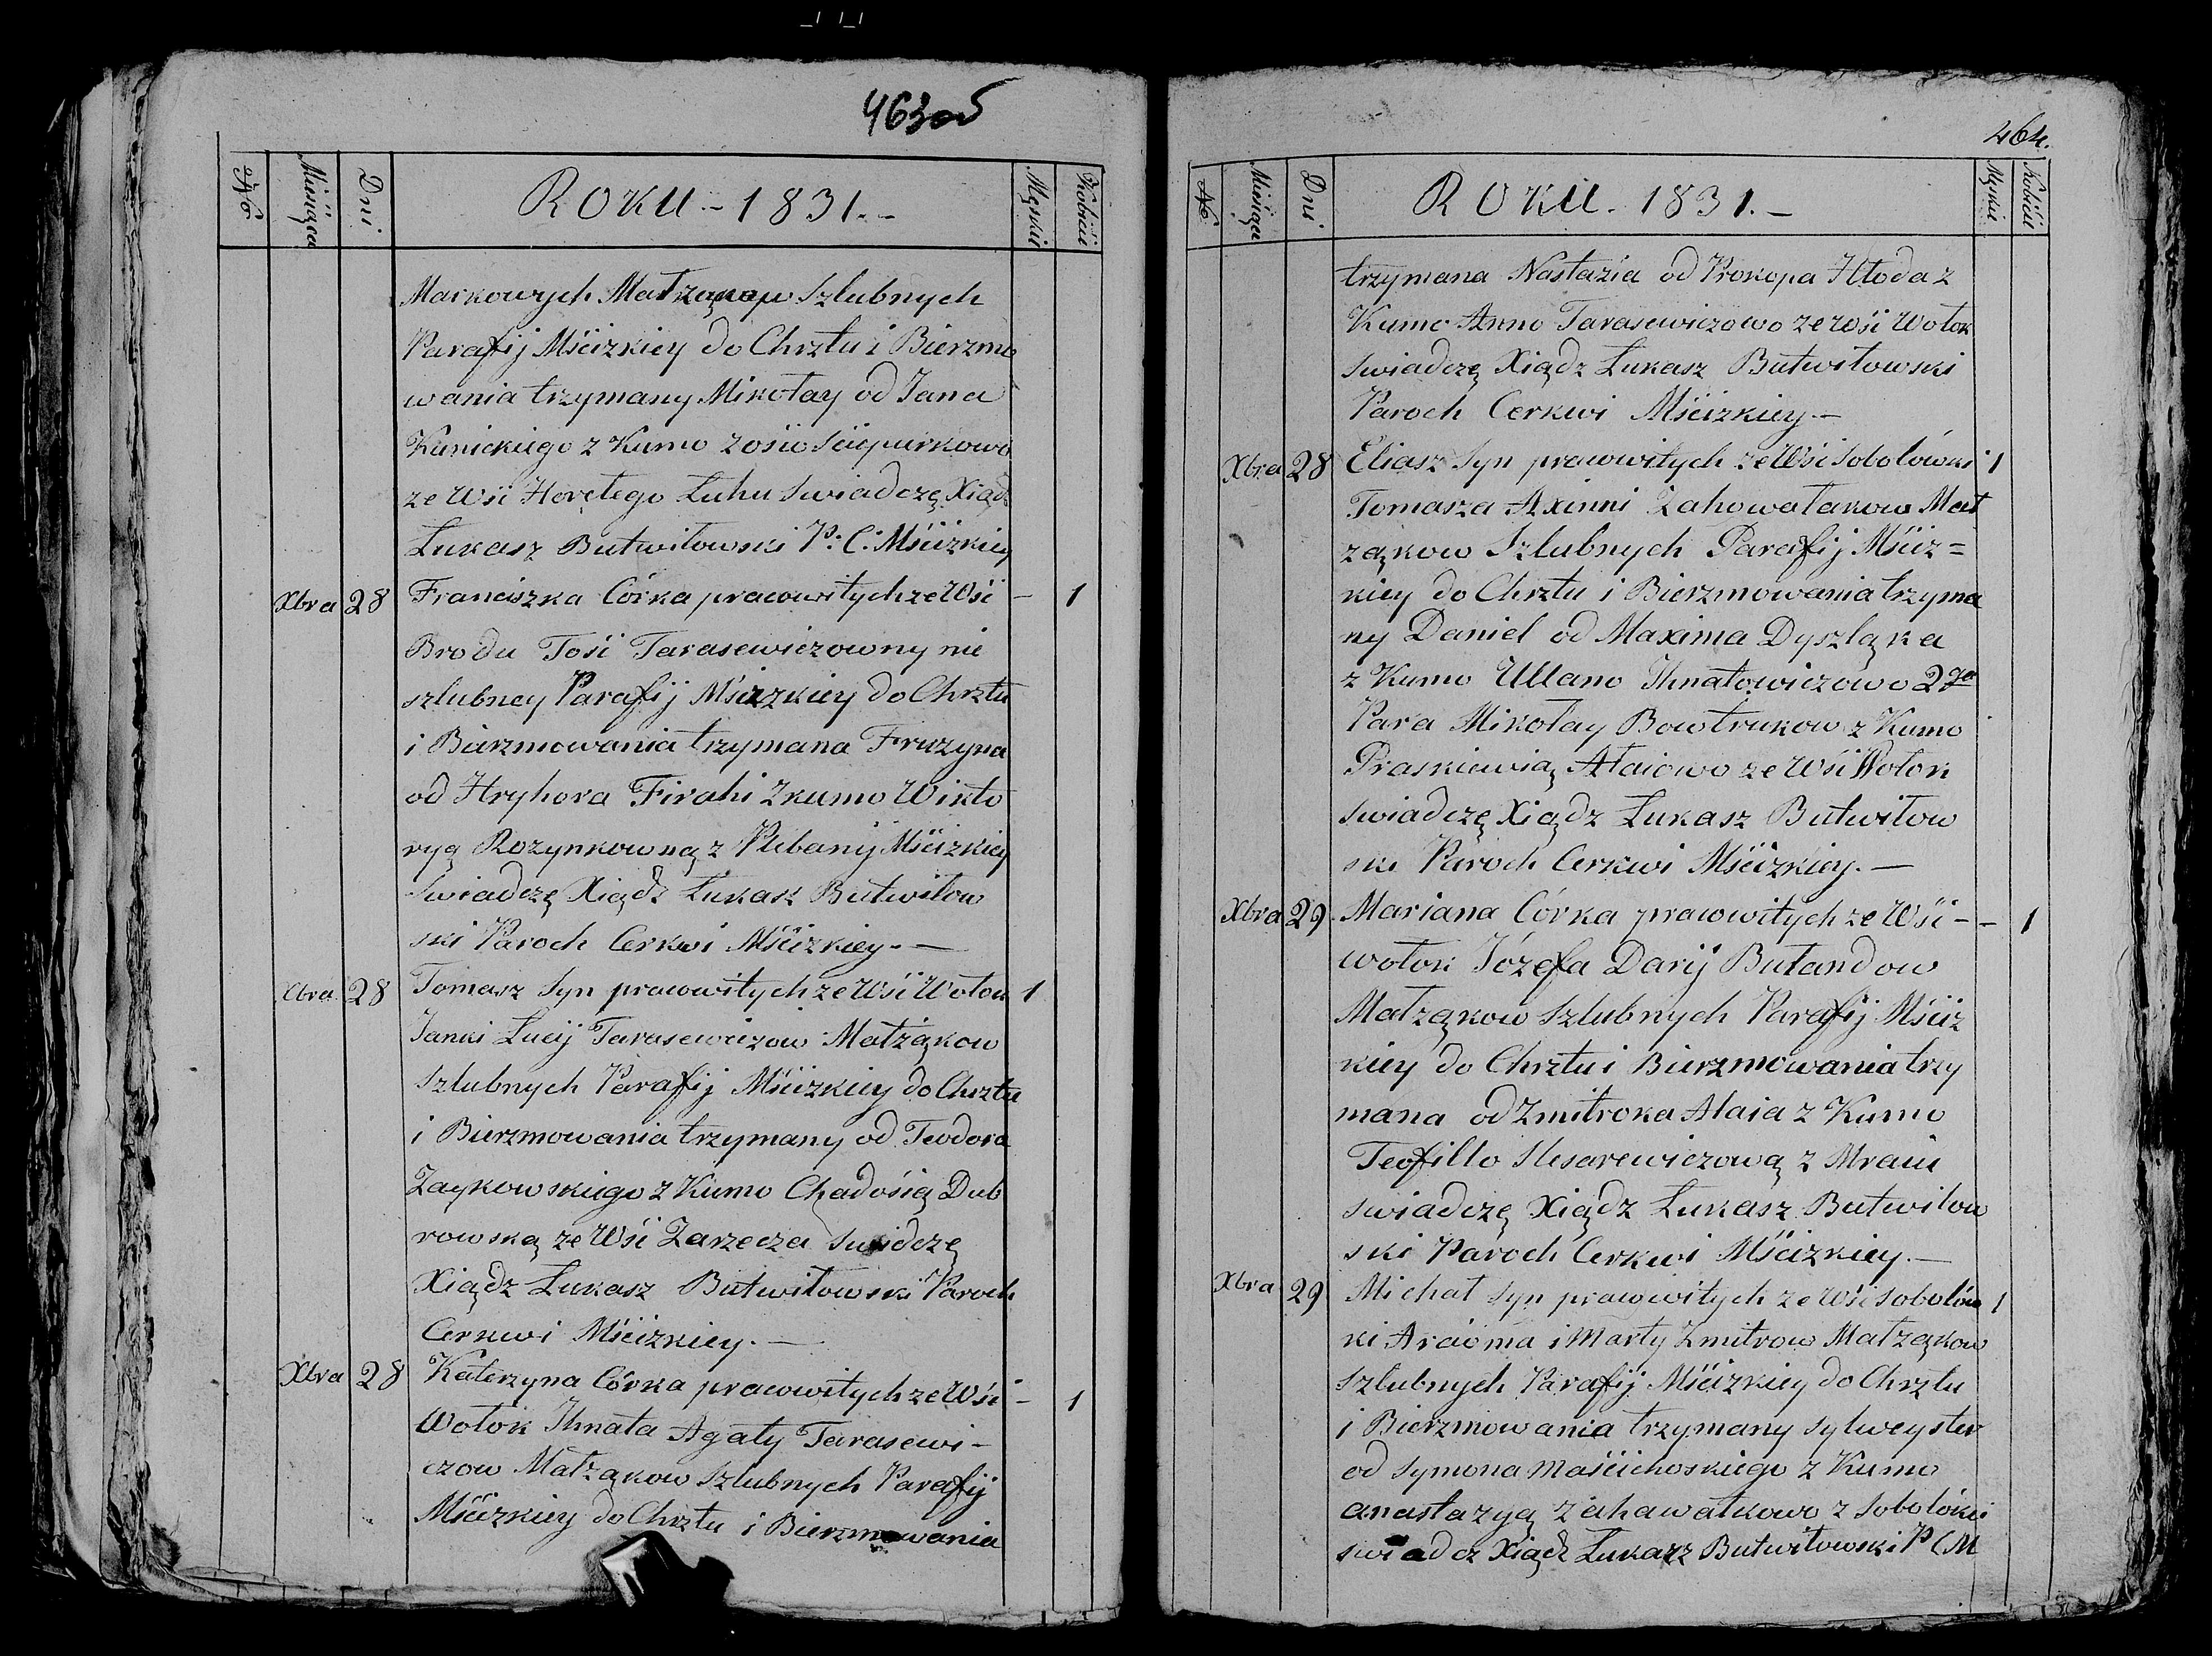 463об
№ Miesiąca Dni ROKU - 1831. - Męskie Kobiéc
Markowych Małżąkow Szlubnych
Parafij Mścizkiey do Chrztu i Bierzmo
wania trzymany Mikołay od Jana
Kunickiego z Kumo Zosio Sciepurkowo
ze Wsi Horełego Łuhu Swiadczę Xiądz
Łukasz Butwiłowski P: C: Mścizkiey
Xbra 28 Franciszka Córka pracowitych ze Wsi - 1
Brodu Tosi Tarasewiczowny nie
szlubney Parafij Mścizkiey do Chrztu
i Bierzmowania trzymana Fruzyna
od Hryhora Firahi z kumo Wikto
ryą Rozynkowną z Plebanij Mścizkiey
Swiadczę Xiądz Łukasz Butwiłow
ski Paroch Cerkwi Mścizkiey. -
Xbra 28 Tomasz Syn pracowitych ze Wsi Wołok 1
Janki Łucij Tarasewiczow Małżąkow
Szlubnych Parafij Mścizkiey do Chrztu
i Bierzmowania trzymany od Teodora
Zaykowskiego z Kumo Chadośią Dub
rowską ze Wsi Zarzecza Swidczę
Xiądz Łukasz Butwiłowski Paroch
Cerkwi Mścizkiey. -
Xbra 28 Katerzyna Córka pracowitych ze Wsi - 1
Wołok Ihnata Agaty Tarasewi-
czow Małżąkow Szlubnych Parafij
Mścizkiey do Chrztu i Bierzmowania
464.
№ Miesiąca Dni ROKU - 1831. - Męskie Kobiéc
trzymana Nastazia od Prokopa Hłoda z
Kumo Anno Tarasewiczowo ze wsi Wołok
Swiadczę Xiądz Łukasz Butwiłowski
Paroch Cerkwi Mścizkiey. -
Xbra 28 Eliasz Syn pracowitych ze Wsi Sobolówki 1
Tomasza Axinni Zahowałakow Mał
żąkow Szlubnych Parafij Mściz=
kiey do Chrztu i Bierzmowania trzyma
ny Daniel od Maxima Dyszląka
z Kumo Ullano Ihnatowiczowo 2go
Para Mikołay Bowtrukow z Kumo
Praskiewią Ałaiowo ze Wsi Wołok
Swiadczę Xiądz Łukasz Butwiłow
ski Paroch Cerkwi Mścizkiey. -
Xbra 29 Mariana Córka pracowitych ze Wsi - - 1
wołok Józefa Darij Bułandow
Małżąkow Szlubnych Parafij Mściz
kiey do Chrztu i Bierzmowania trzy
mana od Zmitroka Ałaia z Kumo
Teofillo Slesarewiczową z Mrai
swiadczę Xiądz Łukasz Butwiłow
ski Paroch Cerkwi Mścizkiey. -
Xbra 29 Michał Syn pracowitych ze Wsi Sobolów 1
ki i Marty Zmitrow Małżąkow
Szlubnych Parafij Mścizkiey do Chrztu
i Bierzmowania trzymany Sylweyster
od Symona Maścichoskiego z Kumo
anastazyą Zahawałkowo z Sobolókii
swiadcz Xiądz Łukasz Butwiłowski P C M